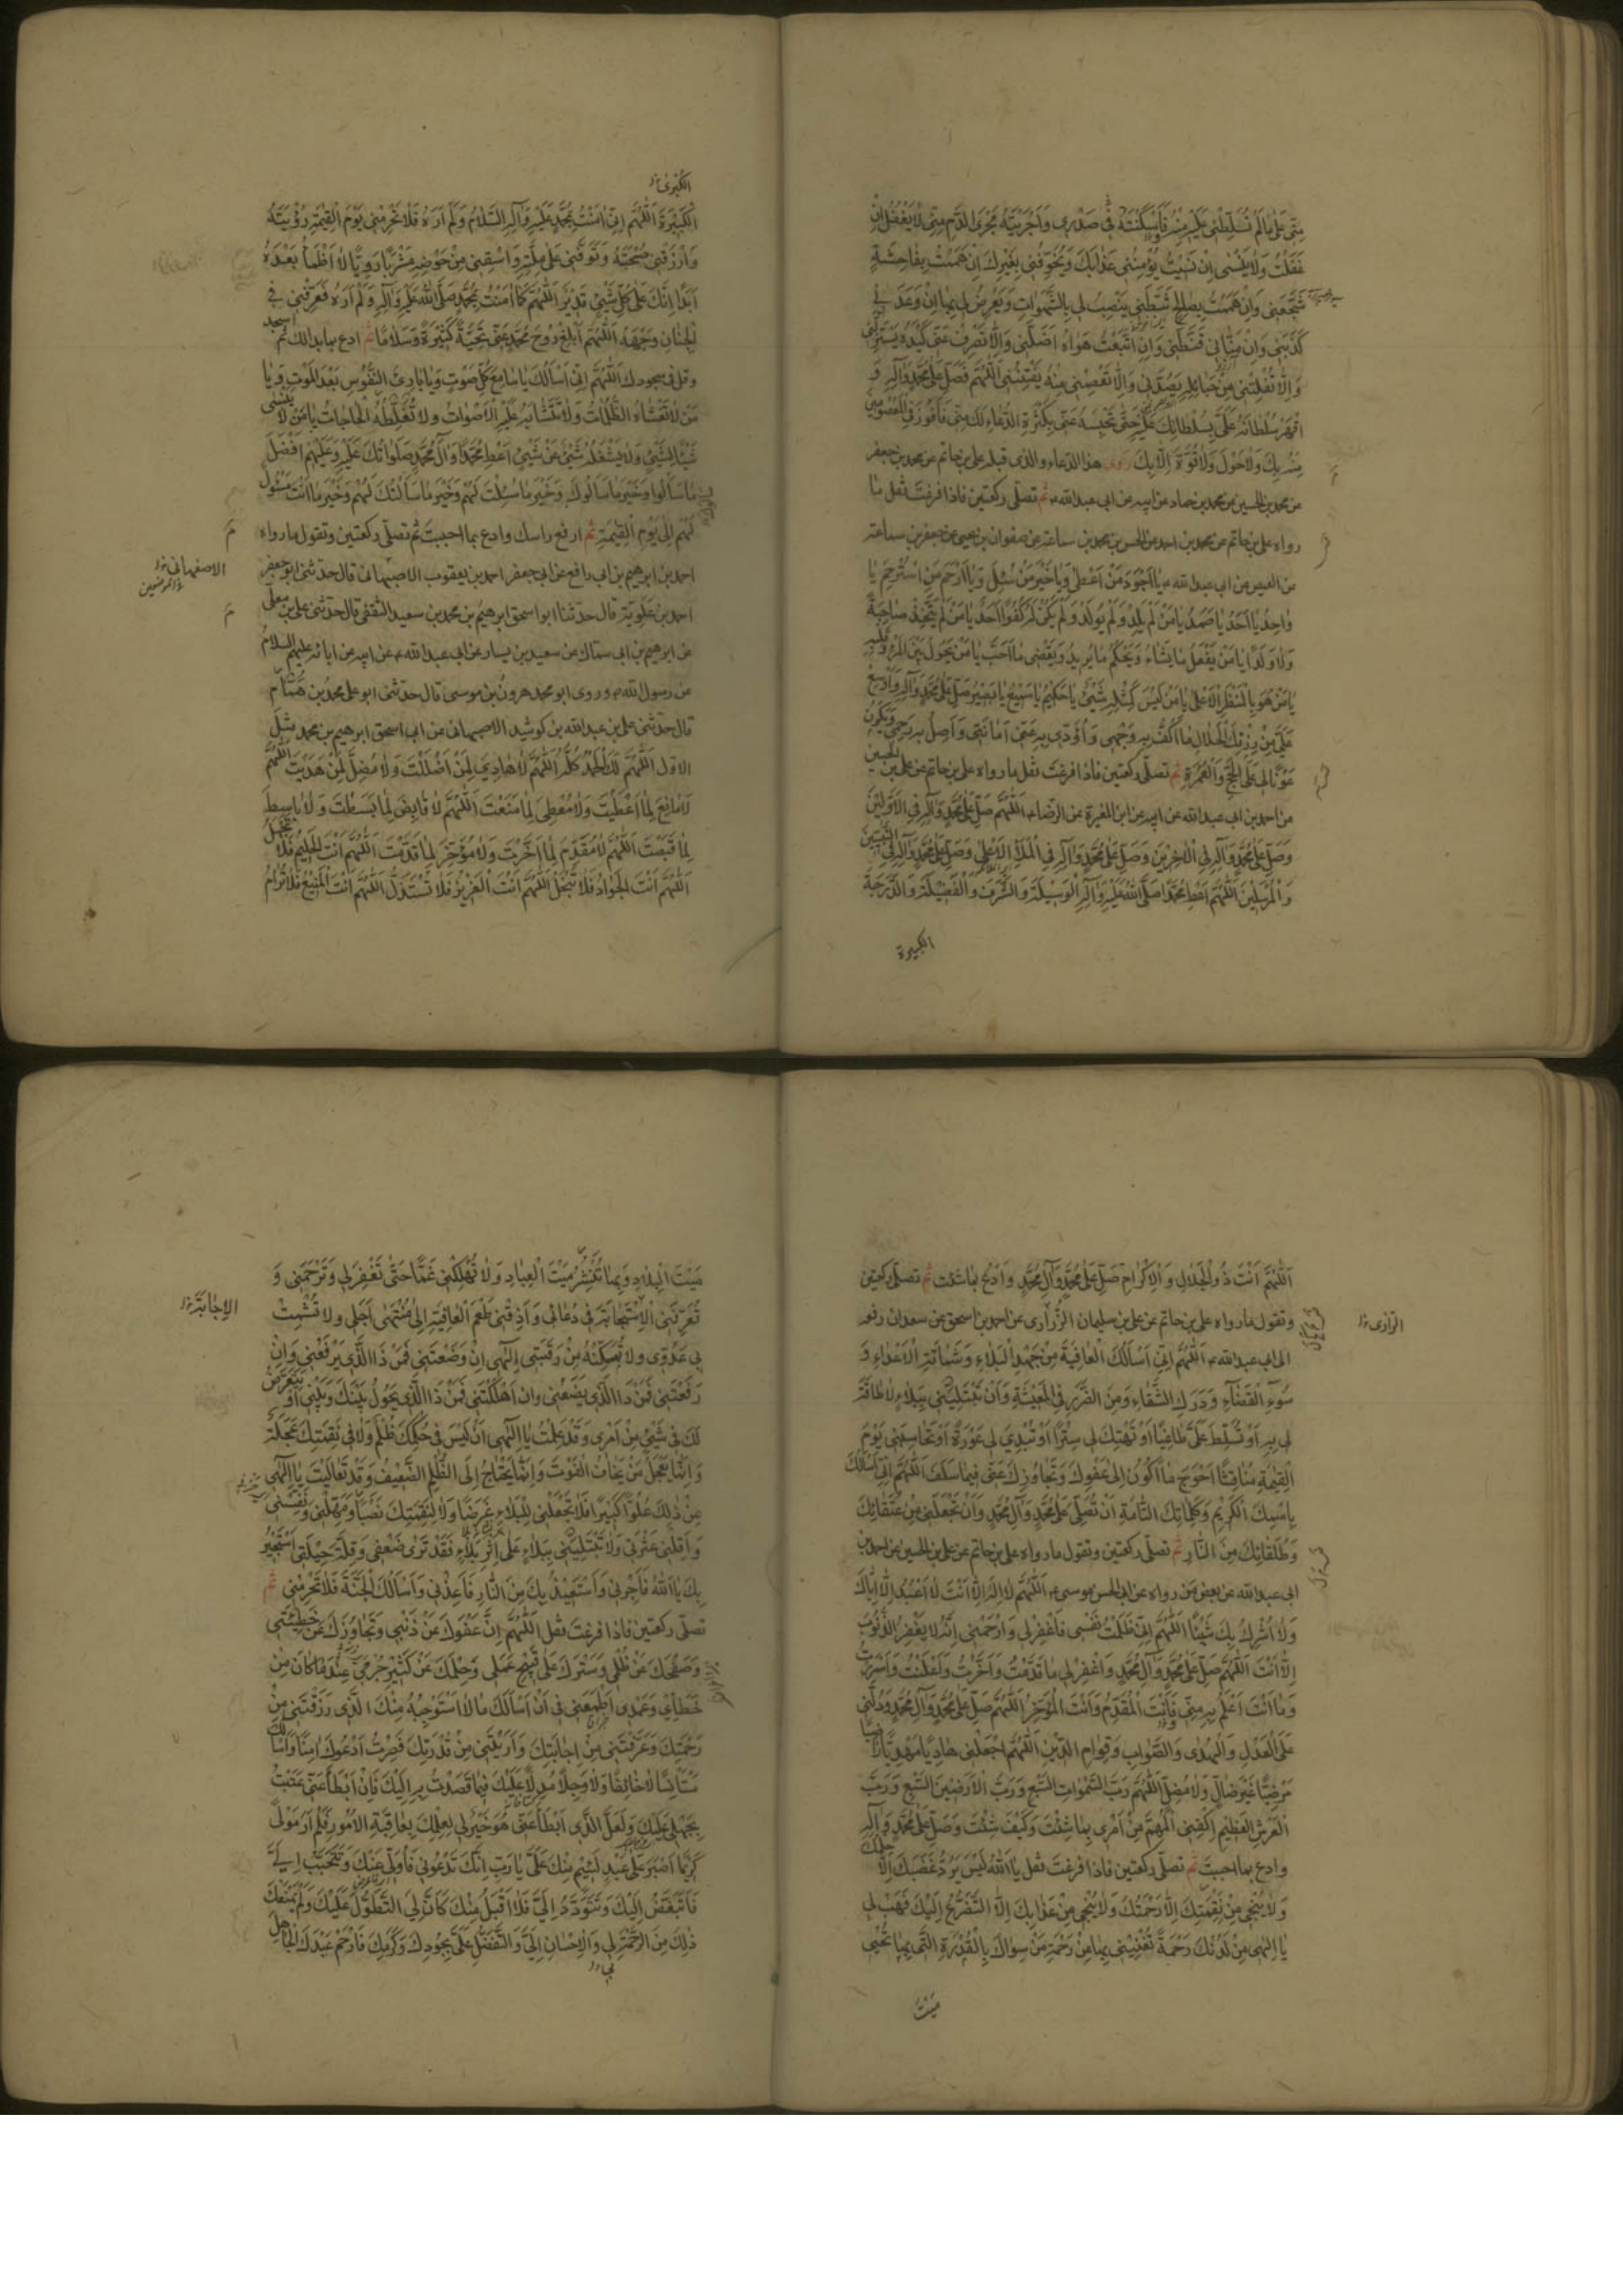 مِنّى عَلىٰ مَا لَمْ تُسَلِّطْنى عَلَيْهِ مِنْهُ فَاَسْكَنْتَهُ فى صَدْرى وَاَجْرَيْتَهُ مَجْرَى الدَّمِ مِنّى لاٰ يَغْفُلُ اِنْ
غَفَلْتُ وَلاٰ يَنْسىٰ اِنْ نَسيتُ يُؤْمِنُنى عَذٰابَكَ وَيُخَوِّفُنى بِغَيْرِكَ اِنْ هَمَمْتُ بِفٰاحِشَةٍ
شَجَّعَنى وَاِنْ هَمَمْتُ بِصٰالِحٍ ثَبَّطَنى يَنْصِبُ لى بِالشَّهَوٰاتِ وَيَعْرِضُ لى بِهٰا اِنْ وَعَدَنى
كَذَبَنى وَاِنْ مَنّٰانى قَنَّطَنى وَاِنِ اتَّبَعْتُ هَوٰاهُ اَضَلَّنى وَاِلاّٰ تَصْرِفْ عَنّى كَيْدَهُ يَسْتَزِلَّنى
وَاِلاّٰ تُفْلِتْنى مِنْ حَبٰائِلِهِ يَصُدَّنى وَاِلاّٰ تَعْصِمْنى مِنْهُ يَفْتِنّى اَللّٰهُمَّ فَصَلِّ عَلىٰ مُحَمَّدٍ وَاٰلِهِ وَ
اقْهَرْ سُلْطٰانَهُ عَلَىَّ بِسُلْطٰانِكَ عَلَيْهِ حَتّىٰ تَحْبِسَهُ عَنّى بِكَثْرَةِ الدُّعٰاءِ لَكَ مِنّى فَاَفُوزَ فِى الْمَعْصُومينَ
مِنْهُ بِكَ وَلاٰ حَوْلَ وَلاٰ قُوَّةَ اِلاّٰ بِكَ روى هذا الدعاء والذى قبله على بن حاتم عن محمد بن جعفر
عن محمد بن الحسين عن محمد بن حماد عن ابيه عن ابى عبدالله ع ثم تصلّى ركعتين فاذا فرغتَ فقل ما
رواه على بن حاتم عن محمد بن احمد عن الحسن بن محمد بن سماعة عن صفوان بن يحيى عن جعفر بن سماعة
عن العيص عن ابى عبدالله ع يٰا اَجْوَدَ مَنْ اَعْطىٰ وَيٰا خَيْرَ مَنْ سُئِلَ وَيٰا اَرْحَمَ مَنِ اسْتُرْحِمَ يٰا
وٰاحِدُ يٰا اَحَدُ يٰا صَمَدُ يٰا مَنْ لَمْ يَلِدْ وَلَمْ يُولَدْ وَلَمْ يَكُنْ لَهُ كُفُوًا اَحَدٌ يٰا مَنْ لَمْ يَتَّخِذْ صٰاحِبَةً
وَلاٰ وَلَدًا يٰا مَنْ يَفْعَلُ مٰا يَشٰاءُ وَيَحْكُمُ مٰا يُريدُ وَيَقْضى مٰا اَحَبَّ يٰا مَنْ يَحُولُ بَيْنَ الْمَرْءِ وَقَلْبِهِ
يٰا مَنْ هُوَ بِالْمَنْظَرِ الْاَعْلىٰ يٰا مَنْ لَيْسَ كَمِثْلِهِ شَىْءٌ يٰا حَكيمُ يٰا سَميعُ يٰا بَصيرُ صَلِّ عَلىٰ مُحَمَّدٍ وَاٰلِهِ وَاَوْسِعْ
عَلَىَّ مِنْ رِزْقِكَ الْحَلاٰلِ مٰا اَكُفُّ بِهِ وَجْهى وَاُؤَدّى بِهِ عَنّى اَمٰانَتى وَاَصِلُ بِهِ رَحِمى وَيَكُونُ
عَوْنًا لى عَلَى الْحَجِّ وَالْعُمْرَةِ ثم تصلّى ركعتين فاذا فرغتَ فقل ما رواه على بن حاتم عن على بن الحسين
عن احمد بن ابى عبدالله عن ابيه عن ابن المغيرة عن الرضا ع اَللّٰهُمَّ صَلِّ عَلىٰ مُحَمَّدٍ وَاٰلِهِ فِى الْاَوَّلينَ
وَصَلِّ عَلىٰ مُحَمَّدٍ وَاٰلِهِ فِى الْاٰخِرينَ وَصَلِّ عَلىٰ مُحَمَّدٍ وَاٰلِهِ فِى الْمَلَاِ الْاَعْلىٰ وَصَلِّ عَلىٰ مُحَمَّدٍ وَاٰلِهِ فِى النَّبِيّينَ
وَالْمُرْسَلينَ اَللّٰهُمَّ اَعْطِ مُحَمَّدًا صَلَّى اللهُ عَلَيْهِ وَاٰلِهِ الْوَسيلَةَ وَالشَّرَفَ وَالْفَضيلَةَ وَالدَّرَجَةَ
الكبيرة
الكُبْرىٰ
الْكَبيرَةَ اَللّٰهُمَّ اِنّى اٰمَنْتُ بِمُحَمَّدٍ عَلَيْهِ وَاٰلِهِ السَّلاٰمُ وَلَمْ اَرَهُ فَلاٰ تَحْرِمْنى يَوْمَ الْقِيٰمَةِ رُؤْيَتَهُ
وَارْزُقْنى صُحْبَتَهُ وَتَوَفَّنى عَلىٰ مِلَّتِهِ وَاسْقِنى مِنْ حَوْضِهِ مَشْرَبًا رَوِيًّا لاٰ اَظْمَأُ بَعْدَهُ
اَبَدًا اِنَّكَ عَلىٰ كُلِّ شَىْءٍ قَديرٌ اَللّٰهُمَّ كَمٰا اٰمَنْتُ بِمُحَمَّدٍ صَلَّى اللهُ عَلَيْهِ وَاٰلِهِ وَلَمْ اَرَهُ فَعَرِّفْنى فِى
الْجِنٰانِ وَجْهَهُ اَللّٰهُمَّ اَبْلِغْ رُوحَ مُحَمَّدٍ عَنّى تَحِيَّةً كَثيرَةً وَسَلاٰمًا ثم ادع بما بدا لك ثم اسجد
وقل فى سجودك اَللّٰهُمَّ اِنّى اَسْأَلُكَ يٰا سٰامِعَ كُلِّ صَوْتٍ وَيٰا بٰارِئَ النُّفُوسِ بَعْدَ الْمَوْتِ وَيٰا
مَنْ لاٰ تَغْشٰاهُ الظُّلُمٰاتُ وَلاٰ تَتَشٰابَهُ عَلَيْهِ الْاَصْوٰاتُ وَلاٰ تُغَلِّطُهُ الْحٰاجٰاتُ يٰا مَنْ لاٰ يَنْسىٰ
شَيْئًا لِشَىْءٍ وَلاٰ يَشْغَلُهُ شَىْءٌ عَنْ شَىْءٍ اَعْطِ مُحَمَّدًا وَاٰلَ مُحَمَّدٍ صَلَوٰاتُكَ عَلَيْهِ وَعَلَيْهِمْ اَفْضَلَ
مٰا سَأَلُوا وَخَيْرَ مٰا سَأَلُوكَ وَخَيْرَ مٰا سُئِلْتَ لَهُمْ وَخَيْرَ مٰا سَأَلْتُكَ لَهُمْ وَخَيْرَ مٰا اَنْتَ مَسْئُولٌ
لَهُمْ اِلىٰ يَوْمِ الْقِيٰمَةِ ثم ارفع راسك وادع بما احببتَ ثم تصلّى ركعتين وتقول ما رواه
احمد بن ابرهيم بن ابى رافع عن ابى جعفر احمد بن يعقوب الاصبهانى قال حدثنى ابو جعفر
الاصفهانى
احمد بن عَلَويّة قال حدثنا ابو اسحق ابرهيم بن محمد بن سعيد الثقفى قال حدثنى على بن معلّى
عن ابرهيم بن ابى سمّاك عن سعيد بن يسار عن ابى عبد الله ع عن ابيه عن ابائه عليهم السلام
عن رسول الله ص وروى ابو محمد هرون بن موسى قال حدثنى ابو على محمد بن همّام
قال حدثنى على بن عبدالله بن كوشيد الاصبهانى عن ابى اسحق ابرهيم بن محمد مثل
الاول اَللّٰهُمَّ لَكَ الْحَمْدُ كُلُّهُ اَللّٰهُمَّ لاٰ هٰادِىَ لِمَنْ اَضْلَلْتَ وَلاٰ مُضِلَّ لِمَنْ هَدَيْتَ اَللّٰهُمَّ
لاٰ مٰانِعَ لِمٰا اَعْطَيْتَ وَلاٰ مُعْطِىَ لِمٰا مَنَعْتَ اَللّٰهُمَّ لاٰ قٰابِضَ لِمٰا بَسَطْتَ وَلاٰ بٰاسِطَ
لِمٰا قَبَضْتَ اَللّٰهُمَّ لاٰ مُقَدِّمَ لِمٰا اَخَّرْتَ وَلاٰ مُؤَخِّرَ لِمٰا قَدَّمْتَ اَللّٰهُمَّ اَنْتَ الْحَليمُ فَلاٰ تَجْهَلُ
اَللّٰهُمَّ اَنْتَ الْجَوٰادُ فَلاٰ تَبْخَلُ اَللّٰهُمَّ اَنْتَ الْعَزيزُ فَلاٰ تُسْتَذَلُّ اَللّٰهُمَّ اَنْتَ الْمَنيعُ فَلاٰ تُرٰامُ
اَللّٰهُمَّ اَنْتَ ذُو الْجَلاٰلِ وَالْاِكْرٰامِ صَلِّ عَلىٰ مُحَمَّدٍ وَاٰلِ مُحَمَّدٍ وَادْعُ بِمٰا شئت ثم تصلّى ركعتين
وتقول ما رواه على بن حاتم عن على بن سليمان الزُّرارى عن احمد بن اسحق عن سعدان رفعه
الى ابى عبدالله ع اَللّٰهُمَّ اِنّى اَسْأَلُكَ الْعٰافِيَةَ مِنْ جَهْدِ الْبَلاٰءِ وَشَمٰاتَةِ الْاَعْدٰاءِ وَ
سُوءِ الْقَضٰاءِ وَدَرَكِ الشَّقٰاءِ وَمِنَ الضَّرَرِ فِى الْمَعيشَةِ وَاَنْ تَبْتَلِيَنى بِبَلاٰءٍ لاٰ طٰاقَةَ
لى بِهِ اَوْ تُسَلِّطَ عَلَىَّ طٰاغِيًا اَوْ تَهْتِكَ لى سِتْرًا اَوْ تُبْدِىَ لى عَوْرَةً اَوْ تُحٰاسِبَنى يَوْمَ
الْقِيٰمَةِ مُنٰاقِشًا اَحْوَجَ مٰا اَكُونُ اِلىٰ عَفْوِكَ وَتَجٰاوُزِكَ عَنّى فيمٰا سَلَفَ اَللّٰهُمَّ اِنّى اَسْأَلُكَ
بِاسْمِكَ الْكَريمِ وَكَلِمٰاتِكَ التّٰامَّةِ اَنْ تُصَلِّىَ عَلىٰ مُحَمَّدٍ وَاٰلِ مُحَمَّدٍ وَاَنْ تَجْعَلَنى مِنْ عُتَقٰائِكَ
وَطُلَقٰائِكَ مِنَ النّٰارِ ثم تصلّى ركعتين وتقول ما رواه على بن حاتم عن على بن الحسين عن احمد بن
ابى عبدالله عن بعض من رواه عن ابى الحسن موسى ع اَللّٰهُمَّ لاٰ اِلٰهَ اِلاّٰ اَنْتَ لاٰ اَعْبُدُ اِلاّٰ اِيّٰاكَ
وَلاٰ اُشْرِكُ بِكَ شَيْئًا اَللّٰهُمَّ اِنّى ظَلَمْتُ نَفْسى فَاغْفِرْ لى وَارْحَمْنى اِنَّهُ لاٰ يَغْفِرُ الذُّنُوبَ
اِلاّٰ اَنْتَ اَللّٰهُمَّ صَلِّ عَلىٰ مُحَمَّدٍ وَاٰلِ مُحَمَّدٍ وَاغْفِرْ لى مٰا قَدَّمْتُ وَاَخَّرْتُ وَاَعْلَنْتُ وَاَسْرَرْتُ
وَمٰا اَنْتَ اَعْلَمُ بِهِ مِنّى فَاَنْتَ الْمُقَدِّمُ وَاَنْتَ الْمُؤَخِّرُ اَللّٰهُمَّ صَلِّ عَلىٰ مُحَمَّدٍ وَاٰلِ مُحَمَّدٍ وَدُلَّنى
عَلَى الْعَدْلِ وَالْهُدىٰ وَالصَّوٰابِ وَقِوٰامِ الدّينِ اَللّٰهُمَّ اجْعَلْنى هٰادِيًا مَهْدِيًّا رٰاضِيًا
مَرْضِيًّا غَيْرَ ضٰالٍّ وَلاٰ مُضِلٍّ اَللّٰهُمَّ رَبَّ السَّمٰوٰاتِ السَّبْعِ وَرَبَّ الْاَرَضينَ السَّبْعِ وَرَبَّ
الْعَرْشِ الْعَظيمِ اكْفِنى الْمُهِمَّ مِنْ اَمْرى بِمٰا شِئْتَ وَكَيْفَ شِئْتَ وَصَلِّ عَلىٰ مُحَمَّدٍ وَاٰلِهِ
وادع بما احببتَ ثم تصلّى ركعتين فاذا فرغتَ فقل يٰا اَللهُ لَيْسَ يَرُدُّ غَضَبَكَ اِلاّٰ حِلْمُكَ
وَلاٰ يُنْجى مِنْ نَقِمَتِكَ اِلاّٰ رَحْمَتُكَ وَلاٰ يُنْجى مِنْ عَذٰابِكَ اِلاَّ التَّضَرُّعُ اِلَيْكَ فَهَبْ لى
يٰا اِلٰهى مِنْ لَدُنْكَ رَحْمَةً تُغْنينى بِهٰا مِنْ رَحْمَةِ مَنْ سِوٰاكَ بِالْقُدْرَةِ الَّتى بِهٰا تُحْيى
مَيْتَ
مَيْتَ الْبِلاٰدِ وَبِهٰا تَنْشُرُ مَيْتَ الْعِبٰادِ وَلاٰ تُهْلِكْنى غَمًّا حَتّىٰ تَغْفِرَ لى وَتَرْحَمَنى وَ
تُعَرِّفَنِى الْاِسْتِجٰابَةَ فى دُعٰائى وَاَذِقْنى طَعْمَ الْعٰافِيَةِ اِلىٰ مُنْتَهىٰ اَجَلى وَلاٰ تُشْمِتْ
الاِجٰابَةَ
بى عَدُوّى وَلاٰ تُمَكِّنْهُ مِنْ رَقَبَتى اِلٰهى اِنْ وَضَعْتَنى فَمَنْ ذَا الَّذى يَرْفَعُنى وَاِنْ
رَفَعْتَنى فَمَنْ ذَا الَّذى يَضَعُنى وَاِنْ اَهْلَكْتَنى فَمَنْ ذَا الَّذى يَحُولُ بَيْنَكَ وَبَيْنى اَوْ يَتَعَرَّضُ
لَكَ فى شَىْءٍ مِنْ اَمْرى وَقَدْ عَلِمْتُ يٰا اِلٰهى اَنْ لَيْسَ فى حُكْمِكَ ظُلْمٌ وَلاٰ فى نَقِمَتِكَ عَجَلَةٌ
وَاِنَّمٰا يَعْجَلُ مَنْ يَخٰافُ الْفَوْتَ وَاِنَّمٰا يَحْتٰاجُ اِلَى الظُّلْمِ الضَّعيفُ وَقَدْ تَعٰالَيْتَ يٰا اِلٰهى
عَنْ ذٰلِكَ عُلُوًّا كَبيرًا فَلاٰ تَجْعَلْنى لِلْبَلاٰءِ غَرَضًا وَلاٰ لِنَقِمَتِكَ نَصَبًا وَمَهِّلْنى وَنَفِّسْنى
وَاَقِلْنى عَثْرَتى وَلاٰ تَبْتَلِيَنّى بِبَلاٰءٍ عَلىٰ اَثَرِ بَلاٰءٍ فَقَدْ تَرىٰ ضَعْفى وَقِلَّةَ حيلَتى اَسْتَجيرُ
بِكَ يٰا اَللهُ فَاَجِرْنى وَاَسْتَعيذُ بِكَ مِنَ النّٰارِ فَاَعِذْنى وَاَسْأَلُكَ الْجَنَّةَ فَلاٰ تَحْرِمْنى ثم
تصلّى ركعتين فاذا فرغتَ فقل اَللّٰهُمَّ اِنَّ عَفْوَكَ عَنْ ذَنْبى وَتَجٰاوُزَكَ عَنْ خَطيئَتى
وَصَفْحَكَ عَنْ ظُلْمى وَسَتْرَكَ عَلىٰ قَبيحِ عَمَلى وَحِلْمَكَ عَنْ كَثيرِ جُرْمى عِنْدَ مٰا كٰانَ مِنْ
خَطَائى وَعَمْدى اَطْمَعَنى فى اَنْ اَسْأَلَكَ مٰا لاٰ اَسْتَوْجِبُهُ مِنْكَ الَّذى رَزَقْتَنى مِنْ
رَحْمَتِكَ وَعَرَّفْتَنى مِنْ اِجٰابَتِكَ وَاَرَيْتَنى مِنْ قُدْرَتِكَ فَصِرْتُ اَدْعُوكَ اٰمِنًا وَاَسْأَلُكَ
مُسْتَأْنِسًا لاٰ خٰائِفًا وَلاٰ وَجِلاً مُدِلاًّ عَلَيْكَ فيمٰا قَصَدْتُ بِهِ اِلَيْكَ فَاِنْ اَبْطَأَ عَنّى عَتَبْتُ
بِجَهْلى عَلَيْكَ وَلَعَلَّ الَّذى اَبْطَأَ عَنّى هُوَ خَيْرٌ لى لِعِلْمِكَ بِعٰاقِبَةِ الْاُمُورِ فَلَمْ اَرَ مَوْلىً
كَريمًا اَصْبَرَ عَلىٰ عَبْدٍ لَئيمٍ مِنْكَ عَلَىَّ يٰا رَبِّ اِنَّكَ تَدْعُونى فَاُوَلّى عَنْكَ وَتَتَحَبَّبُ اِلَىَّ
فَاَتَبَغَّضُ اِلَيْكَ وَتَتَوَدَّدُ اِلَىَّ فَلاٰ اَقْبَلُ مِنْكَ كَاَنَّ لِىَ التَّطَوُّلَ عَلَيْكَ وَلَمْ يَمْنَعْكَ
ذٰلِكَ مِنَ الرَّحْمَةِ لى وَالْاِحْسٰانِ اِلَىَّ وَالتَّفَضُّلِ عَلَىَّ بِجُودِكَ وَكَرَمِكَ فَارْحَمْ عَبْدَكَ الْجٰاهِلَ
بى